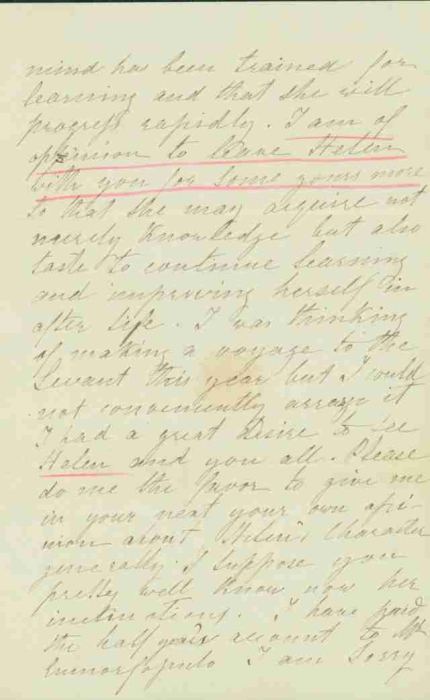 mind has been trained for
learning and that she will
progress rapidly. I am of
opinion to leave Helen
with you for some years more
so that she may acquire not
merely knowledge but also
taste to continue learning
and improving herself in
after life. I was thinking
of making a voyage to the
Levant this year but I could
not conveniently arrange it
I had a great desire to see
Helen and you all. Please
do me the favor to give me
in your next your own opi-
nion about Helen's character
generally. I suppose you
pretty well know now her
inclinations. I have paid
the half year account to Mr
I am sorry